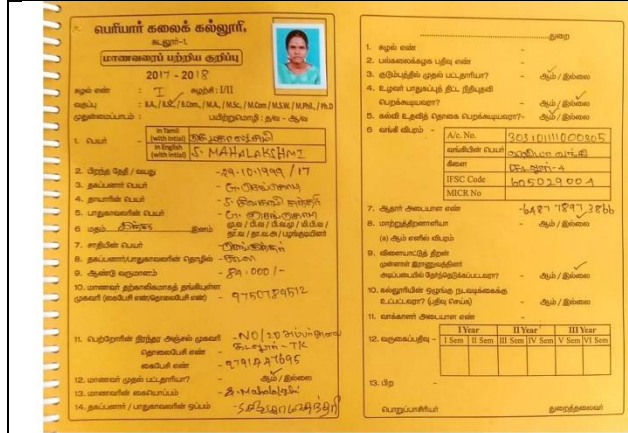 பெரியார் கலைக் கல்லூரி,
கடலூர்-1.
மாணவரைப் பற்றிய குறிப்பு
2017 - 2018
சுழல் எண் : I சுழற்சி : I/II
வகுப்பு : B.A., / B.Sc., / B.Com., / M.A., / M.Sc., / M.Com / M.S.W. / M.Phil., / Ph.D
முதன்மைப்பாடம் : பயிற்றுமொழி : த/வ - ஆ/வ
1. பெயர் In Tamil (with intial)
In English (with intial) S. MAHALAKSHMI
2. பிறந்த தேதி / வயது - 29.10.1999 / 17
3. தகப்பனார் பெயர் -
4. தாயாரின் பெயர் -
5. பாதுகாவலரின் பெயர் -
6 மதம் இனம்
7. சாதியின் பெயர் -
8. தகப்பனார்/பாதுகாவலரின் தொழில் -
9. ஆண்டு வருமானம் - 84.000/-
10. மாணவர் தற்காலிகமாகத் தங்கியுள்ள
முகவரி (கைபேசி எண்/தொலைபேசி எண்) - 9750789512
11. பெற்றோரின் நிரந்தர அஞ்சல் முகவரி - NO/20
தொலைபேசி எண் - கடலூர் - TK
கைபேசி எண் -
12. மாணவர் முதல் பட்டதாரியா? - ஆம் / இல்லை
13. மாணவரின் கையொப்பம் - S. Mahalakshi
14. தகப்பனார் / பாதுகாவலரின் ஒப்பம் -
துறை
1. சுழல் எண் -
2. பல்கலைக்கழக பதிவு எண் -
3. குடும்பத்தில் முதல் பட்டதாரியா? - ஆம் / இல்லை
4. உழவர் பாதுகாப்புத் திட்ட நிதியுதவி
பெறக்கூடியவரா? - ஆம் / இல்லை
5. கல்வி உதவித் தொகை பெறக்கூடியவரா? - ஆம் / இல்லை
6 வங்கி விபரம் - A/c. No. 303101111000305
வங்கியின் பெயர்
கிளை கடலூர்-4
IFSC Code 605029004
MICR No
7. ஆதார் அடையாள எண் - 6487 7897 3866
8. மாற்றுத்திறனாளியா - ஆம் / இல்லை
(அ) ஆம் எனில் விபரம்
9. விளையாட்டுத் திறன்
முன்னாள் இராணுவத்தினர்
அடிப்படையில் தேர்ந்தெடுக்கப்பட்டவரா? - ஆம் / இல்லை
10. கல்லூரியின் ஒழுங்கு நடவடிக்கைக்கு
உட்பட்டவரா? (பதிவு செய்க) - ஆம் / இல்லை
11. வாக்காளர் அடையாள எண் -
I Year II Year III Year
12. வருகைப்பதிவு - I Sem II Sem III Sem IV Sem V Sem VI Sem
13. பிற -
பொறுப்பாசிரியர் துறைத்தலைவர்